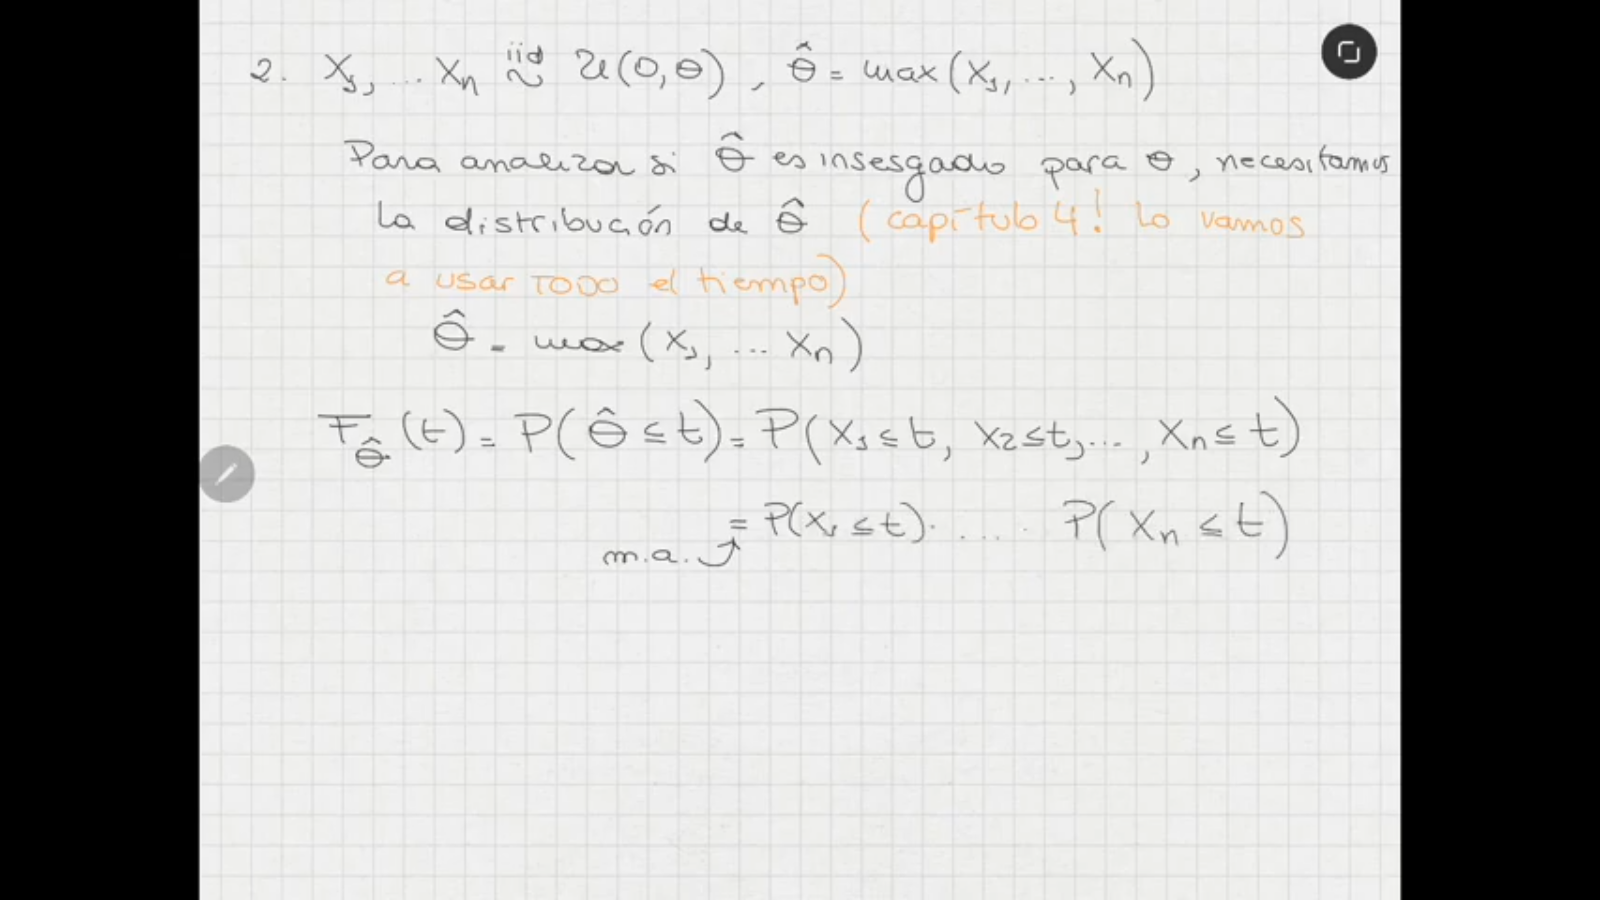 2. X₁, ... Xₙ iid ~ U(0, θ), θ̂ = max(X₁, ..., Xₙ)
Para analizar si θ̂ es insesgado para θ, necesitamos
la distribución de θ̂ (capítulo 4! Lo vamos
a usar TODO el tiempo)
θ̂ = max(X₁, ... Xₙ)
F_θ̂(t) = P(θ̂ ≤ t) = P(X₁ ≤ t, X₂ ≤ t, ..., Xₙ ≤ t)
= P(X₁ ≤ t) · .... P(Xₙ ≤ t)
m.a.